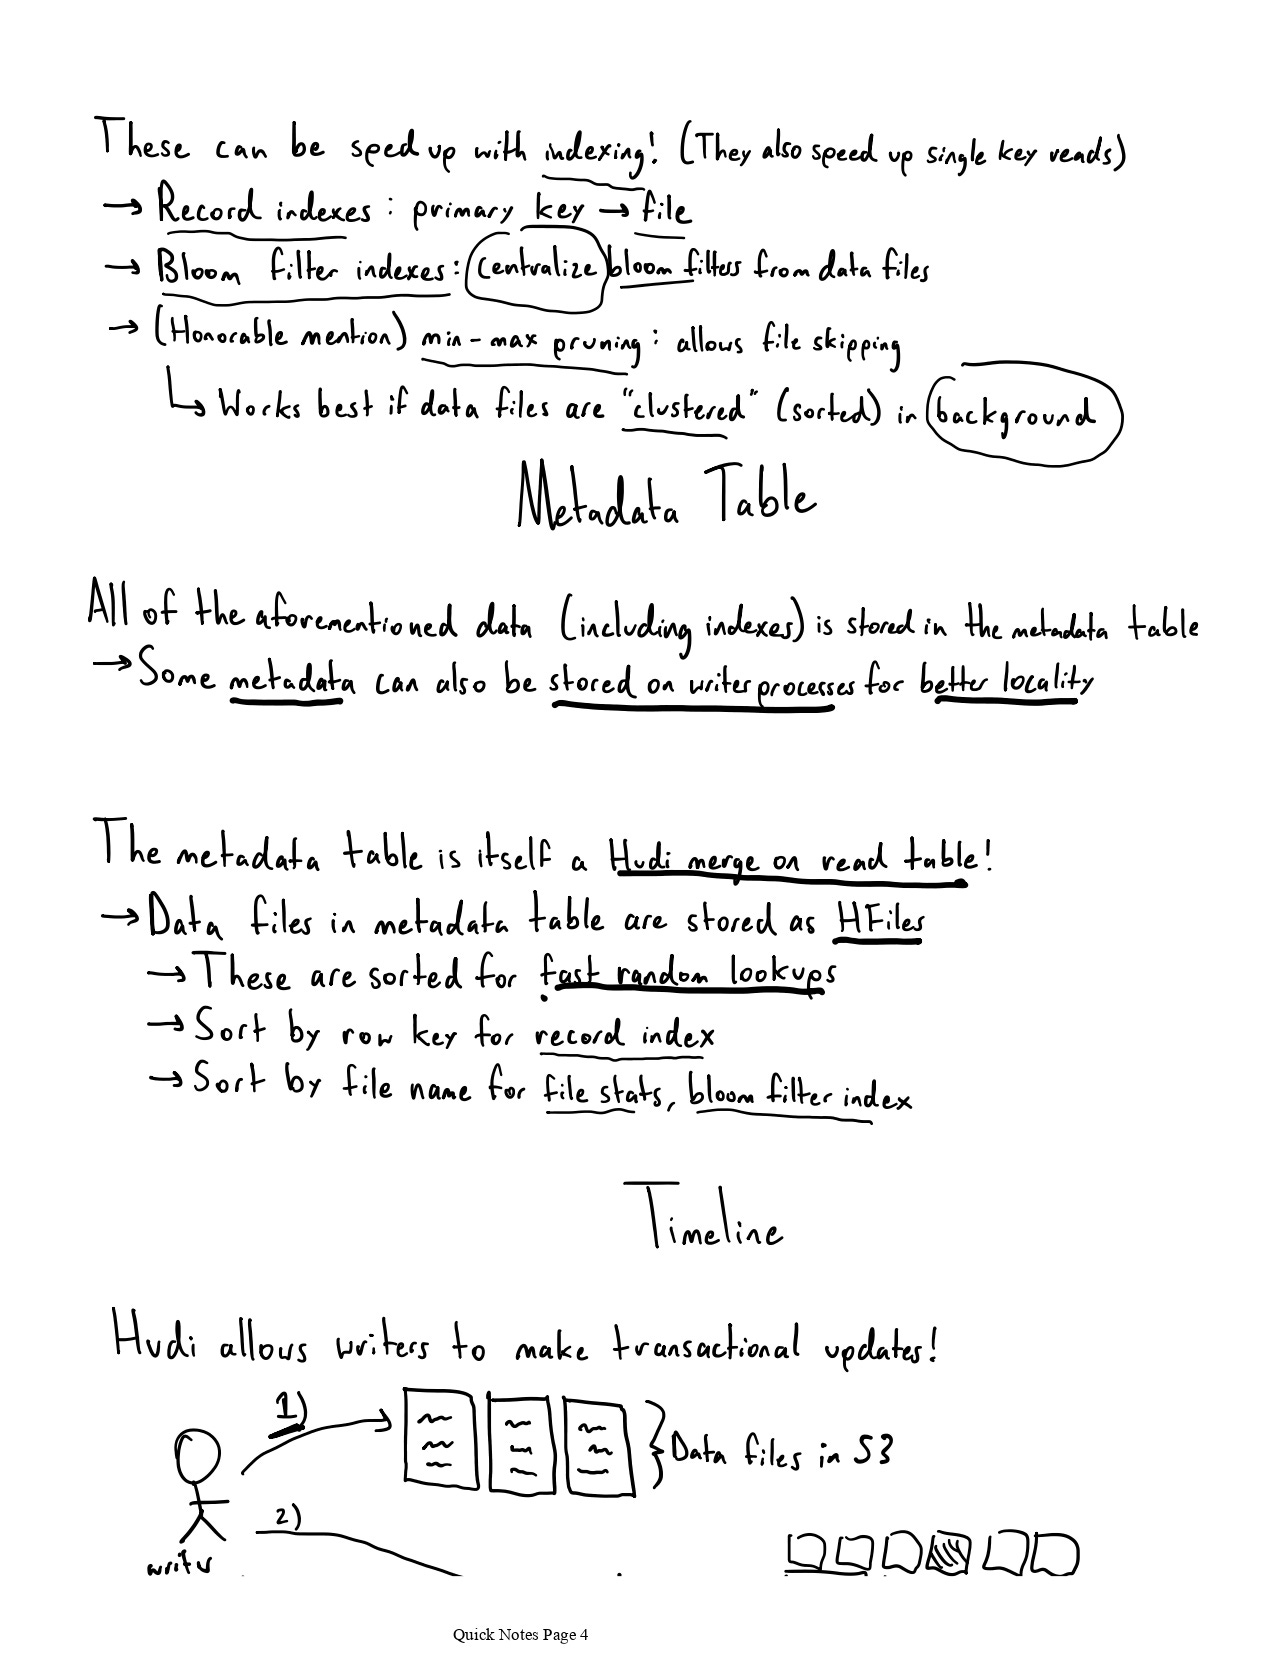 These can be sped up with indexing! (They also speed up single key reads)
→ Record indexes: primary key → file
→ Bloom filter indexes: centralize bloom filters from data files
→ (Honorable mention) min-max pruning: allows file skipping
↳ Works best if data files are "clustered" (sorted) in background
Metadata Table
All of the aforementioned data (including indexes) is stored in the metadata table
→ Some metadata can also be stored on writer processes for better locality
The metadata table is itself a Hudi merge on read table!
→ Data files in metadata table are stored as HFiles
→ These are sorted for fast random lookups
→ Sort by row key for record index
→ Sort by file name for file stats, bloom filter index
Timeline
Hudi allows writers to make transactional updates!
1)
Data files in S3
2)
writer
Quick Notes Page 4